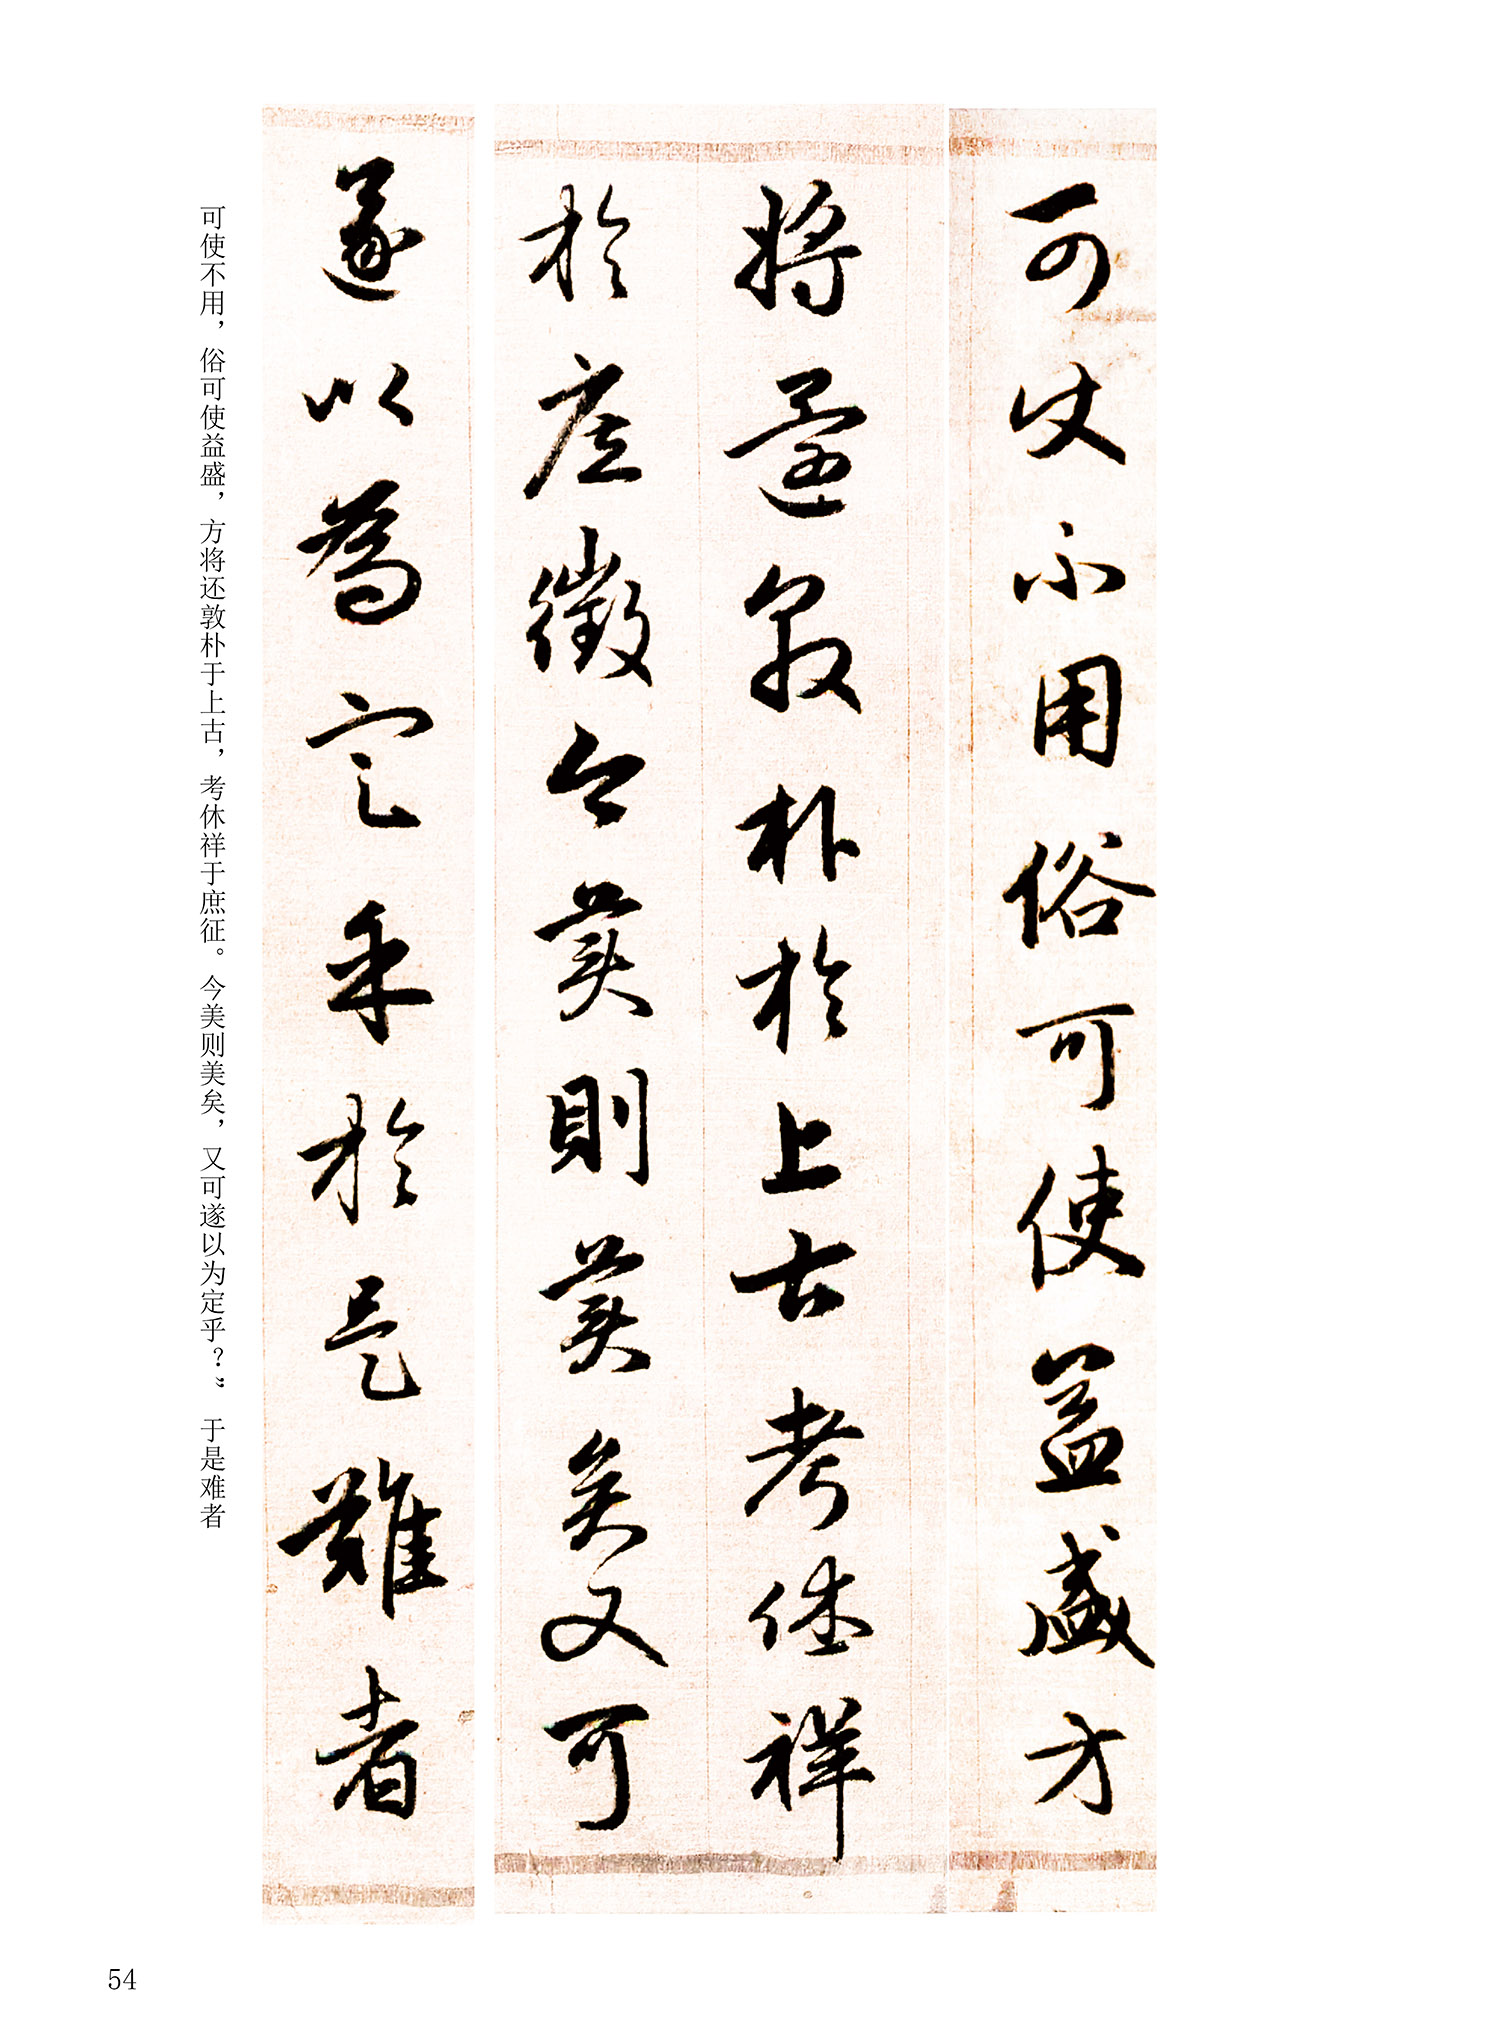 可使不用俗可使益盛方
將還敦朴於上古考休祥
於庶徵今美則美矣又可
遂以為定乎於是難者
可使不用，俗可使益盛，方将还敦朴于上古，考休祥于庶征。今美则美矣，又可遂以为定乎？”于是难者
54